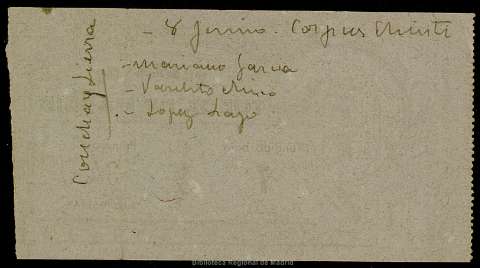 - 8 Junio. Corpus Christi
- Mariano Garcia
- Vanchito Chico
- Lopez Lago
Concha y Sierra
Biblioteca Regional de Madrid